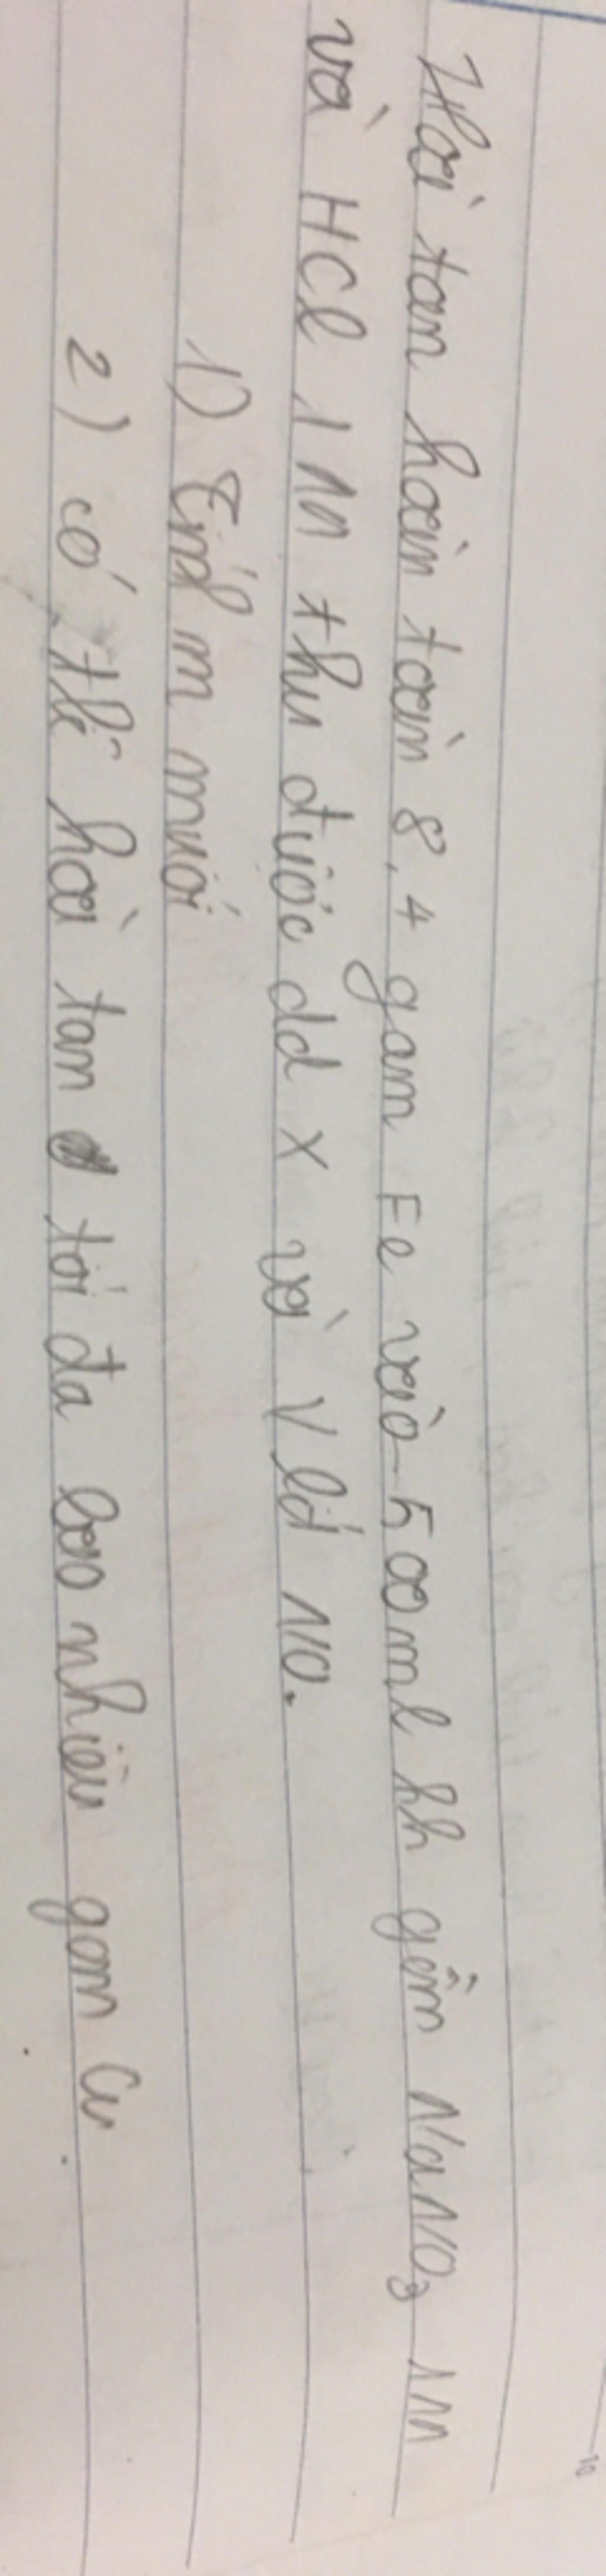 Hoà tan hoàn toàn 8,4 gam Fe vào 500ml hh gồm NaNO3 1M
và HCl 1M thu được dd X và V lít NO.
1) Tính m muối
2) có thể hoà tan tối đa bao nhiêu gam Cu